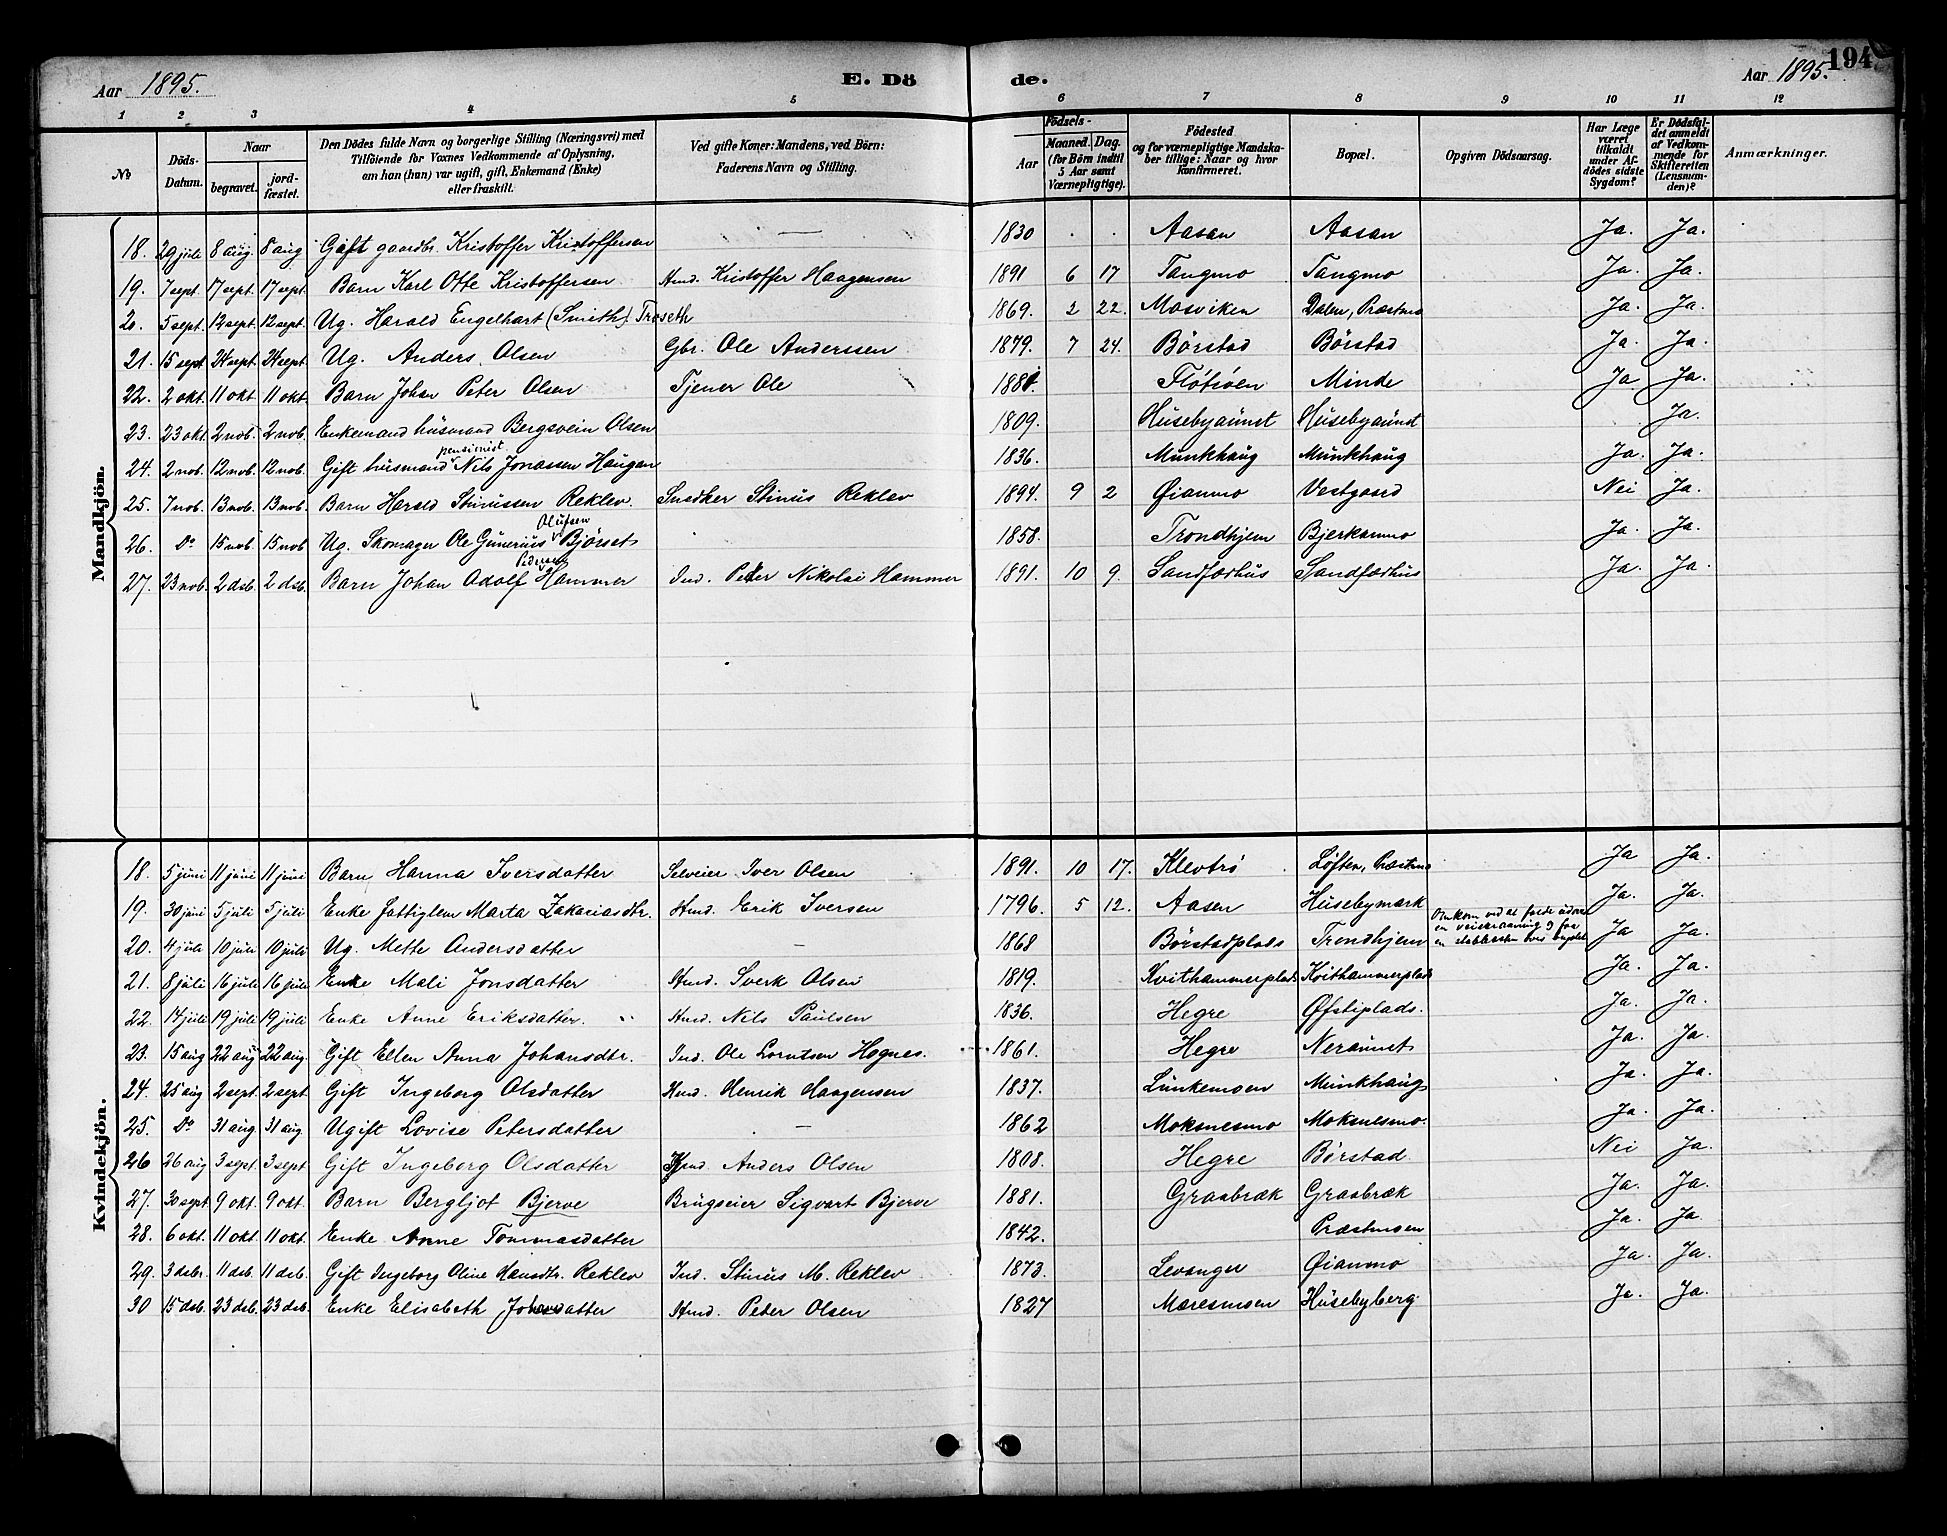 194
Aar 1895. E. Döde. Aar 1895.
1 2 3 4 5 6 7 8 9 10 11 12
№ | Döds-Datum. | Naar begravet. | jord-fæstet. | Den Dödes fulde Navn og borgerlige Stilling (Næringsvei) med Tilföiende for Voxnes Vedkommende af Oplysning, om han (hun) var ugift, gift, Enkemand (Enke) eller fraskilt. | Ved gifte Koner: Mandens, ved Börn: Faderens Navn og Stilling. | Födsels- Aar | Maaned. | Dag. (for Börn indtil 5 Aar samt Værnepligtige). | Födested og for værnepligtige Mandskaber tillige: Naar og hvor konfirmeret. | Bopæl. | Opgiven Dödsaarsag. | Har Læge været tilkaldt under Afdödes sidste Sygdom? | Er Dödsfaldet anmeldt af Vedkommende for Skifteretten (Lensmanden)? | Anmærkninger.
Mandkjön.
18. | 29 juli | 8 aug. | 8 aug | Gift gaardbr. Kristoffer Kristoffersen | — | 1830 | . | . | Aasan | Aasan | Ja. | Ja.
19. | 7 sept. | 17 sept. | 17 sept. | Barn Karl Otto Kristoffersen | Hmd. Kristoffer Haagensen | 1891 | 6 | 17 | Tangmo | Tangmo | Ja. | Ja.
20. | 5 sept. | 12 sept. | 12 sept. | Ug. Harald Engelhart (Smith) Trøseth | 1869. | 2 | 22. | Mosviken | Dalen, Præstmo | Ja. | Ja.
21. | 15 sept | 24 sept. | 24 sept. | Ug. Anders Olsen | Gbr. Ole Anderssen | 1879. | 7 | 24. | Børstad | Børstad | Ja. | Ja.
22. | 2 okt. | 11 okt | 11 okt | Barn Johan Peter Olsen | Tjener Ole | Minde | Ja | Ja.
23. | 23 okt. | 2 nob. | 2 nob. | Enkemand husmand Bergsvein Olsen | 1809. | Husebyaunet | Husebyaunet | Ja.
24. | 2 nob. | 12 nob. | 12 nob. | Gift husmand pensionist Nils Jonassen Haugan | 1836. | Munkhaug | Munkhaug | Ja. | Ja.
25. | 7 nob. | 13 nob. | 13 nob. | Barn Harald Stinussen Reklev. | Snedker Stinus Reklev | 1894. | 9 | 2 | Øianmo | Vestgaard | Nei | Ja.
26. | Do | 15 nob. | 15 nob | Ug. Skomager Ole Gunerius Olufsen Bjørset | 1858. | Trondhjem | Bjerkanmo | Ja. | Ja.
27. | 23 nob. | 2 dsb. | 2 dsb. | Barn Johan Adolf Hammer | Ind. Peder Nikolai Hammer | 1891. | 10 | 9. | Sandfærhus | Sandfærhus | Ja. | Ja.
Kvindekjön.
18. | 5 juni | 11 juni | 11 juni | Barn Hanna Iversdatter | Selveier Iver Olsen | 1891. | 10 | 17. | Klevtrø | Løften, Præstmo | Ja | Ja.
19. | 30 juni | 5 juli | 5 juli | Enke fattiglem Marta Zakariasdtr. | Hmd. Erik Iversen | 1796. | 5 | 12. | Aasen | Husebymark | Ja. | Ja.
20. | 4 juli | 10 juli | 10 juli | Ug. Mette Andersdatter | — | 1868 | Børstadplads | Trondhjem | Omkom ved at falde udover en | Ja | Ja.
21. | 8 juli | 16 juli | 16 juli | Enke Mali Jonsdatter | Hmd. Sverk Olsen | 1819. | Kvithammerplads | Kvithammerplads | Ja. | Ja.
22. | 14 juli | 19 juli | 19 juli | Enke Anne Eriksdatter. | Hmd. Nils Paulsen | 1836. | Hegre | Øfstiplads. | Ja. | Ja.
23. | 15 aug | 22 aug | 22 aug. | Gift Ellen Anna Johansdtr. | Ind. Ole Lorntsen Hognes. | 1861. | Hegre | Neraunet | Ja. | Ja.
24. | 25 aug | 2 sept. | 2 sept | Gift Ingeborg Olsdatter | Hmd. Henrik Haagensen | 1837. | Lunkemoen | Munkhaug | Ja. | Ja.
25. | Do | 31 aug. | 31 aug. | Ugift Lovise Petersdatter | — | 1862 | Moksnesmo | Moksnesmo. | Ja. | Ja.
26 | 26 aug | 3 sept. | 3 sept | Gift Ingeborg Olsdatter | Hmd. Anders Olsen | 1808. | Hegre | Børstad | Nei | Ja.
27. | 30 sept | 9 okt. | 9 okt. | Barn Bergljot Bjerve | Brugseier Sigvart Bjerve | 1881. | Graabræk | Graabræk | Ja. | Ja.
28. | 6 okt. | 11 okt. | 11 okt. | Enke Anne Tommasdatter | 1842. | Præstmoen | Ja. | Ja.
29. | 3 dsbr. | 11 dsb. | 11 dsb. | Gift Ingeborg Oline Hansdtr. Reklev | Ind. Stinus M. Reklev | 1873. | Levanger | Øianmo | Ja. | Ja.
30 | 15 dsb. | 23 dsb. | 23 dsb. | Enke Elisabeth Johansdatter | Hmd. Peter Olsen | 1827 | Maresmoen | Husebyberg. | Ja. | Ja.